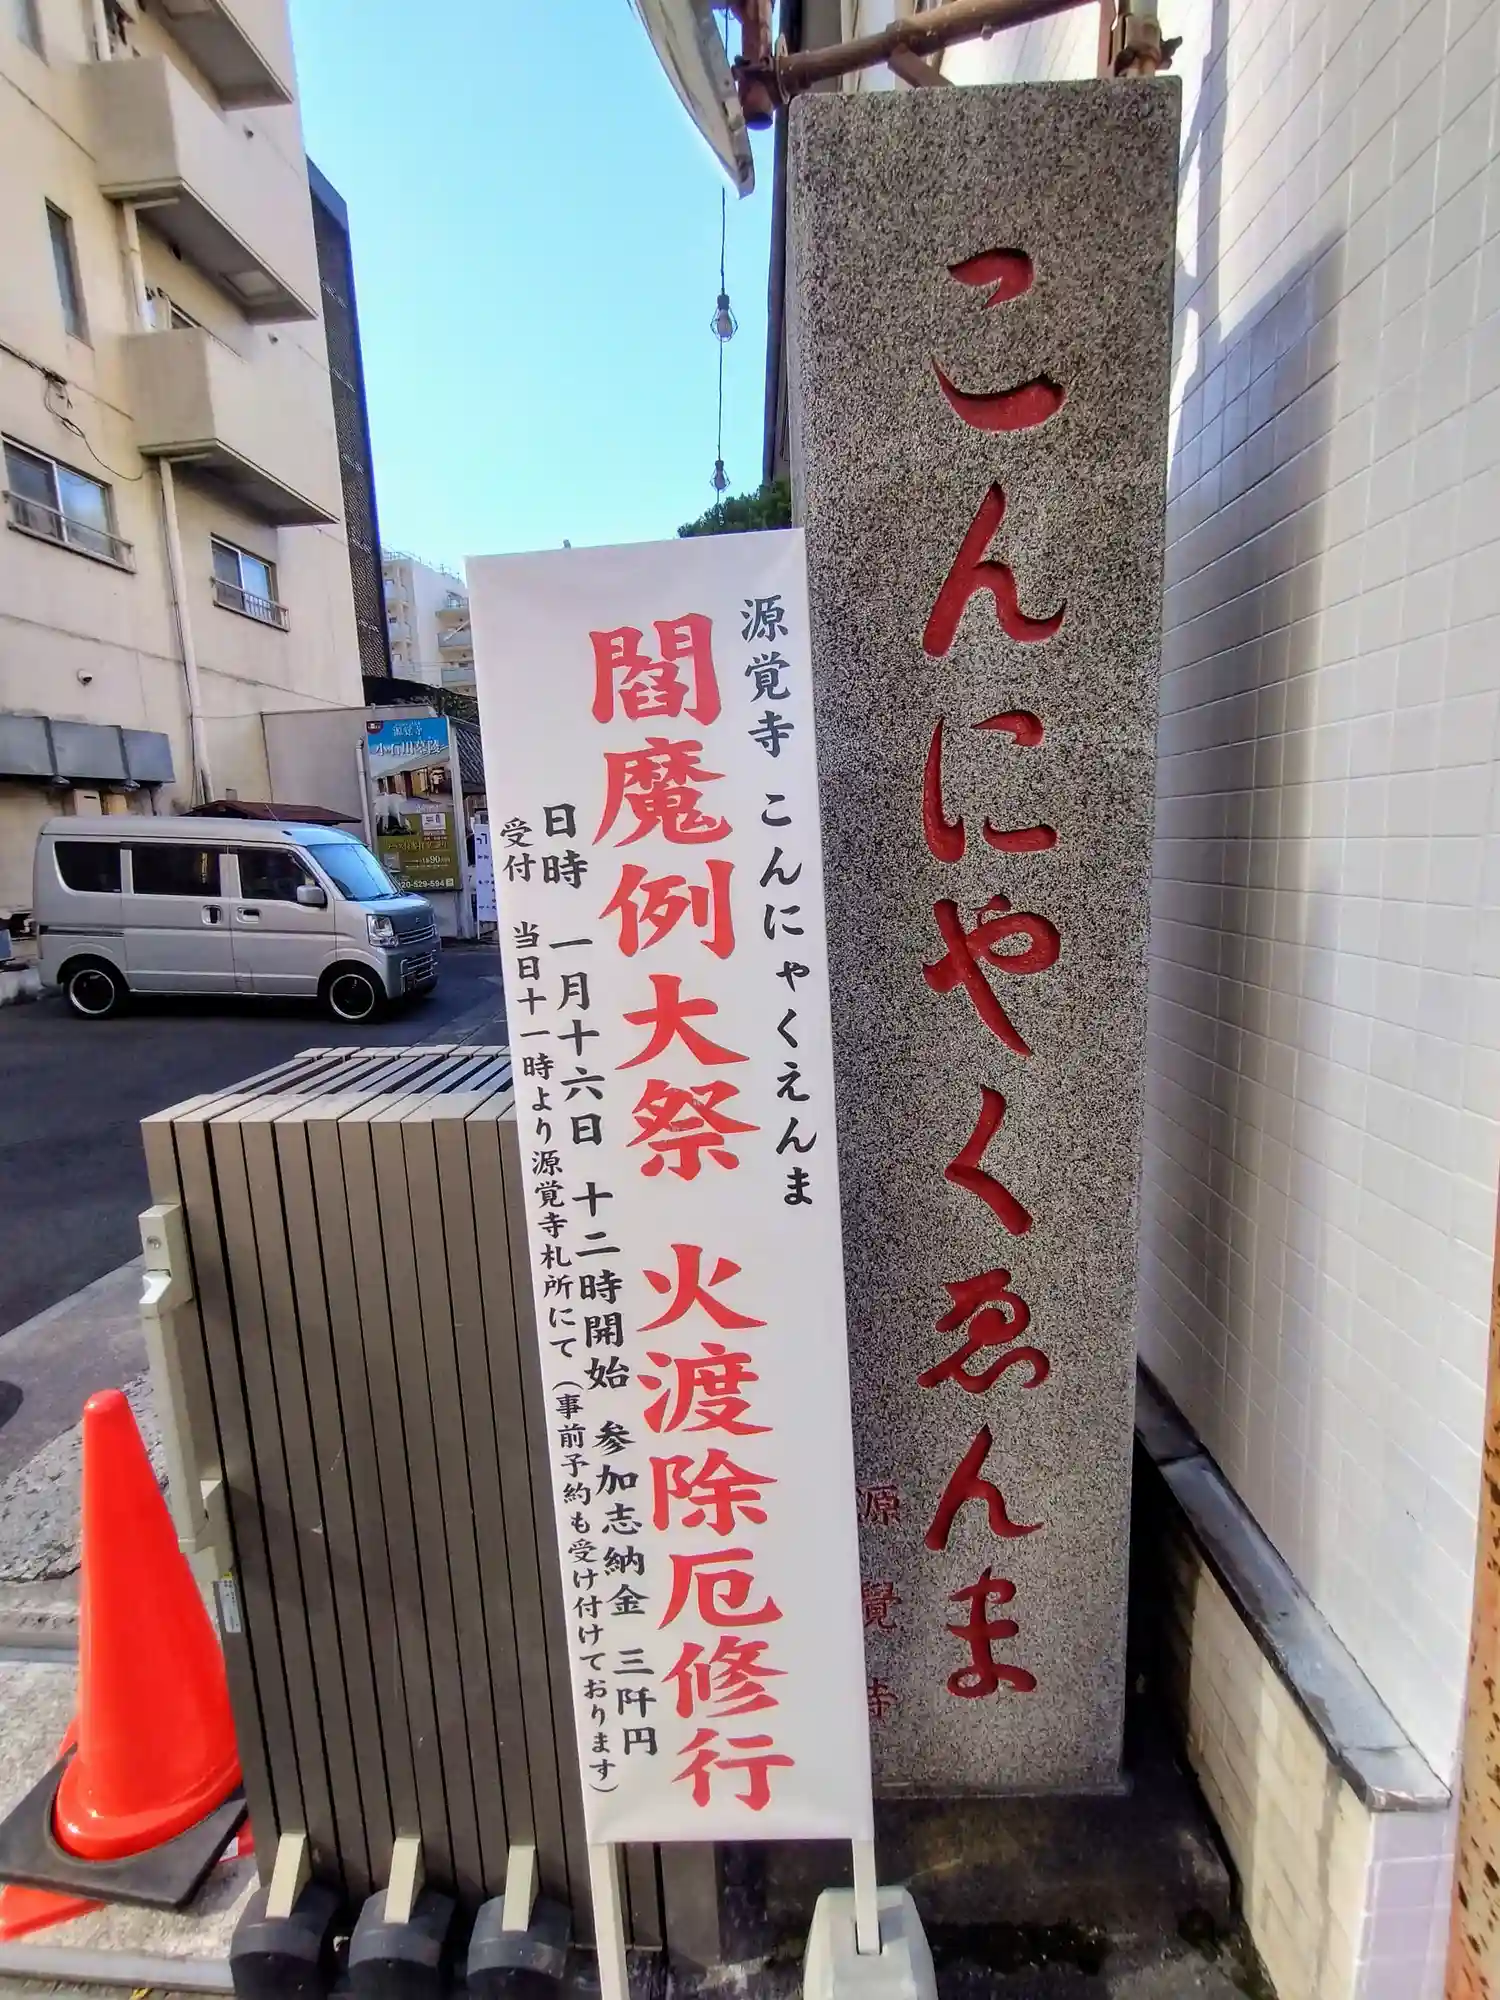 こんにやくゑんま
源覺寺
源覚寺 こんにゃくえんま
閻魔例大祭 火渡除厄修行
日時 一月十六日 十二時開始 参加志納金 三阡円
受付 当日十一時より源覚寺札所にて(事前予約も受け付けております)
源覚寺
小石川墓陵